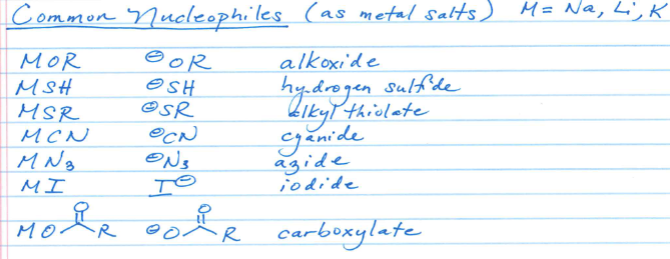 Common Nucleophiles (as metal salts) M = Na, Li, K
MOR ⊖OR alkoxide
MSH ⊖SH hydrogen sulfide
MSR ⊖SR alkyl thiolate
MCN ⊖CN cyanide
MN₃ ⊖N₃ azide
MI I⊖ iodide
O O
MO R ⊖O R carboxylate